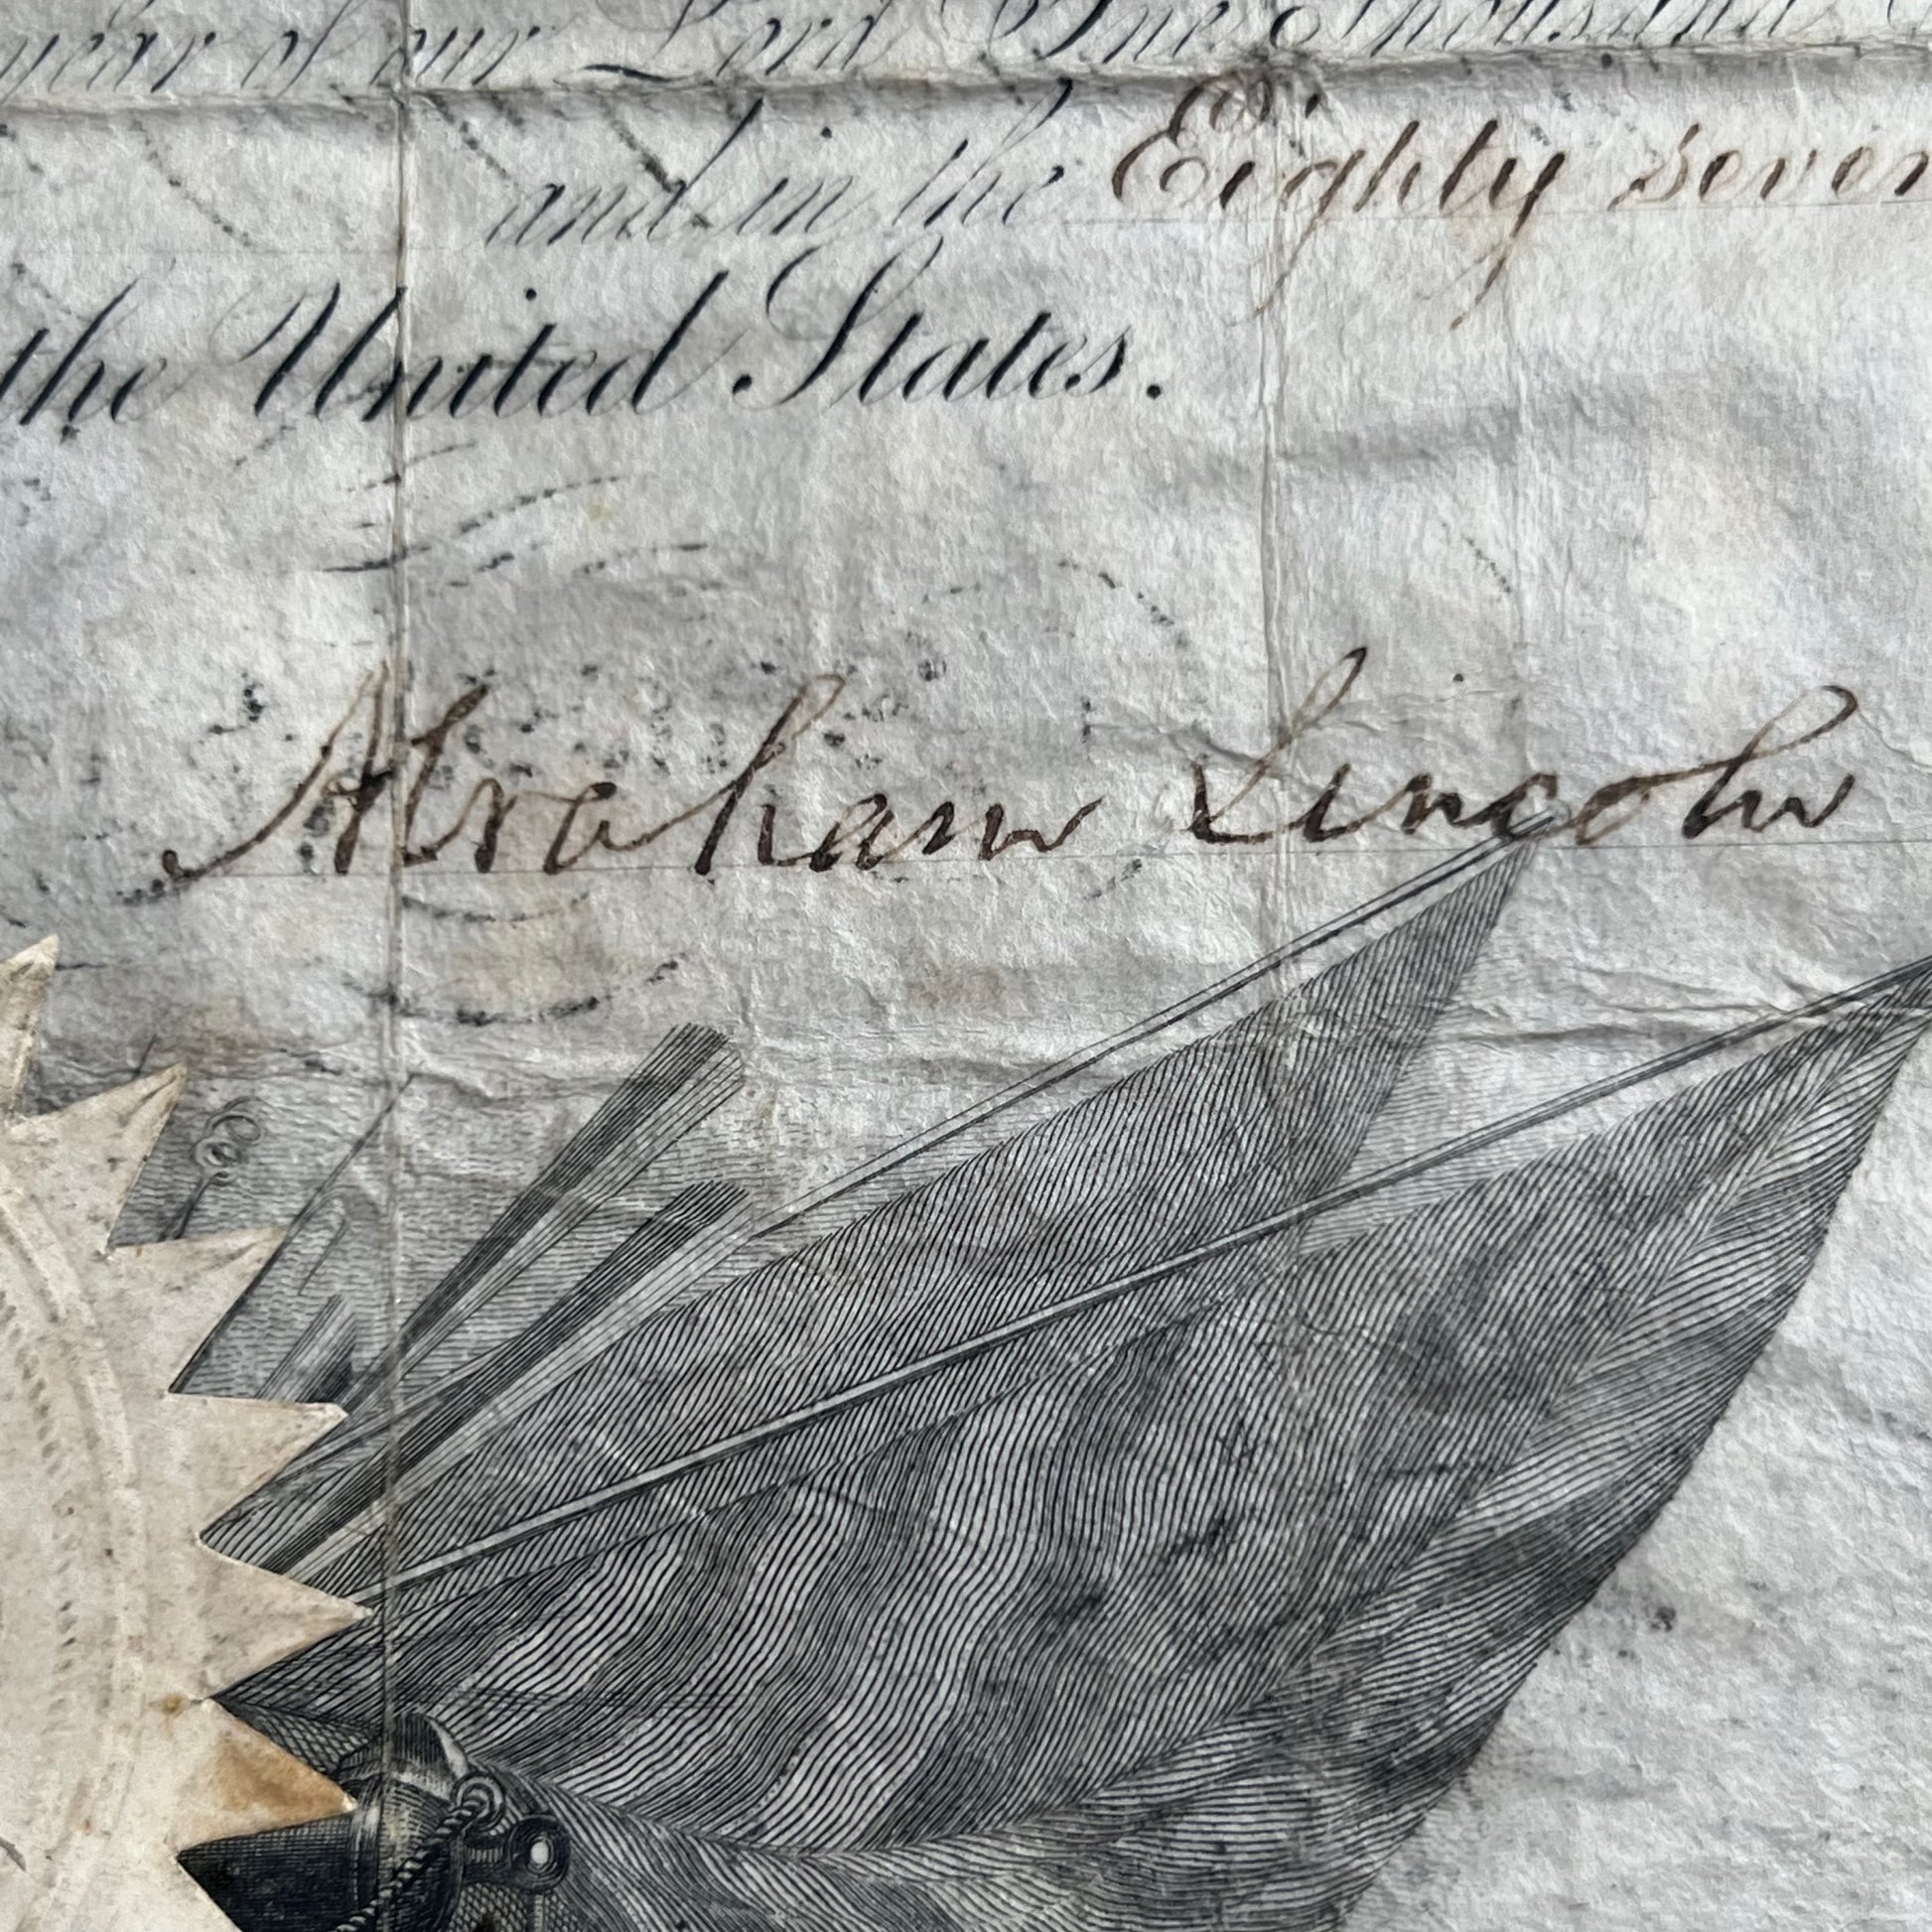 year of our Lord One Thousand
and in the Eighty seven
the United States.
Abraham Lincoln